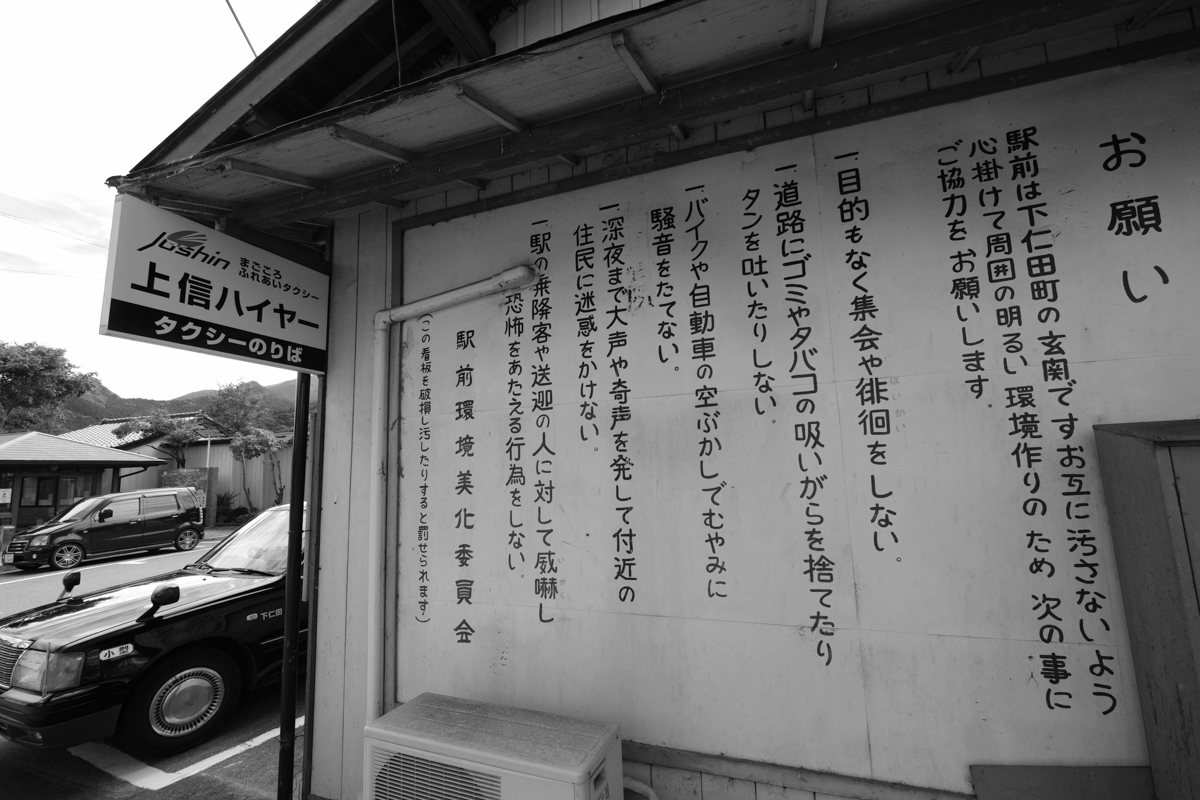 お願い
駅前は下仁田町の玄関ですお互に汚さないよう
心掛けて周囲の明るい環境作りのため 次の事に
ご協力を お願いします。
一.目的もなく集会や徘徊をしない。
はいかい
一.道路にゴミやタバコの吸いがらを捨てたり
タンを吐いたりしない。
一.バイクや自動車の空ぶかしでむやみに
騒音をたてない。
一.深夜まで大声や奇声を発して付近の
住民に迷惑をかけない。
一.駅の乗降客や送迎の人に対して威嚇し
いかく
恐怖をあたえる行為をしない。
駅前環境美化委員会
(この看板を破損し汚したりすると罰せられます)
Joshin
まごころ
ふれあいタクシー
上信ハイヤー
タクシーのりば
小型
下仁田